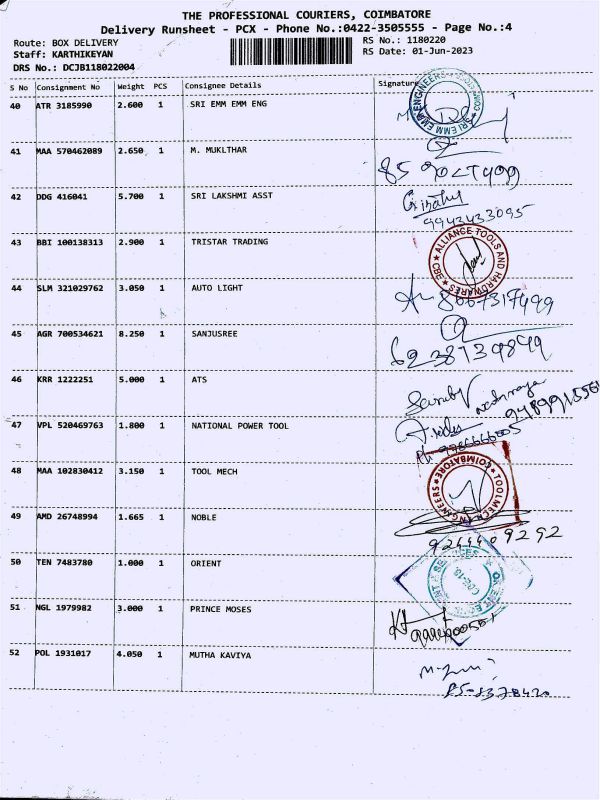 THE PROFESSIONAL COURIERS, COIMBATORE
Delivery Runsheet - PCX - Phone No.:0422-3505555 - Page No.:4
Route: BOX DELIVERY RS No.: 1180220
Staff: KARTHIKEYAN RS Date: 01-Jun-2023
DRS No.: DCJB118022004
S No Consignment No Weight PCS Consignee Details Signature
40 ATR 3185990 2.600 1 SRI EMM EMM ENG
41 MAA 570462089 2.650 1 M. MUKLTHAR
42 DDG 416041 5.700 1 SRI LAKSHMI ASST
9943433095
43 BBI 100138313 2.900 1 TRISTAR TRADING
ALLIANCE TOOLS AND HARDWARES ★ CBE ★
44 SLM 321029762 3.050 1 AUTO LIGHT
8667317499
45 AGR 700534621 8.250 1 SANJUSREE
46 KRR 1222251 5.000 1 ATS
47 VPL 520469763 1.800 1 NATIONAL POWER TOOL
48 MAA 102830412 3.150 1 TOOL MECH
TOOLMECH ENGINEERS ★ COIMBATORE ★
49 AMD 26748994 1.665 1 NOBLE
9244409292
50 TEN 7483780 1.000 1 ORIENT
51 NGL 1979982 3.000 1 PRINCE MOSES
52 POL 1931017 4.050 1 MUTHA KAVIYA